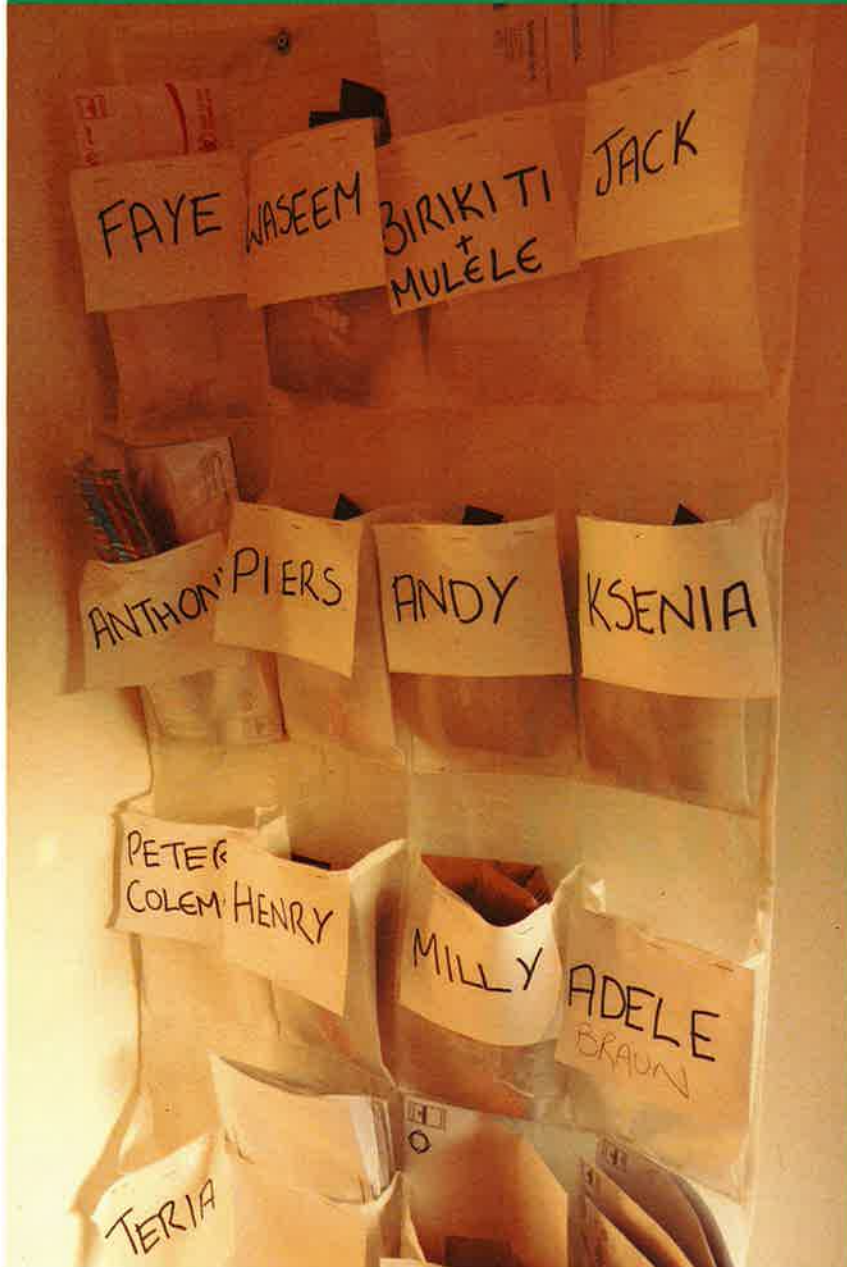 FAYE
WASEEM
BIRIKITI
+
MULELE
JACK
ANTHON
PIERS
ANDY
KSENIA
PETER
COLEM
HENRY
MILLY
ADELE
BRAUN
TERIA